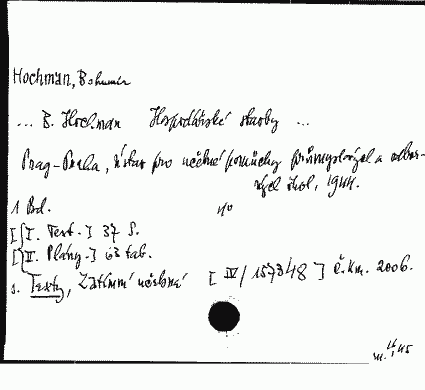 Hochman, Bohumír
... B. Hochman Hospodářské stavby ...
Prag-Praha, Ústav pro učebné pomůcky průmyslových a odbor-
ných škol, 1944.
1 Bd. 4o
[I. Text.] 37 S.
[II. Plány.] 63 tab.
s. Texty, Zatímní učebné [IV/157348] Č.km. 2006.